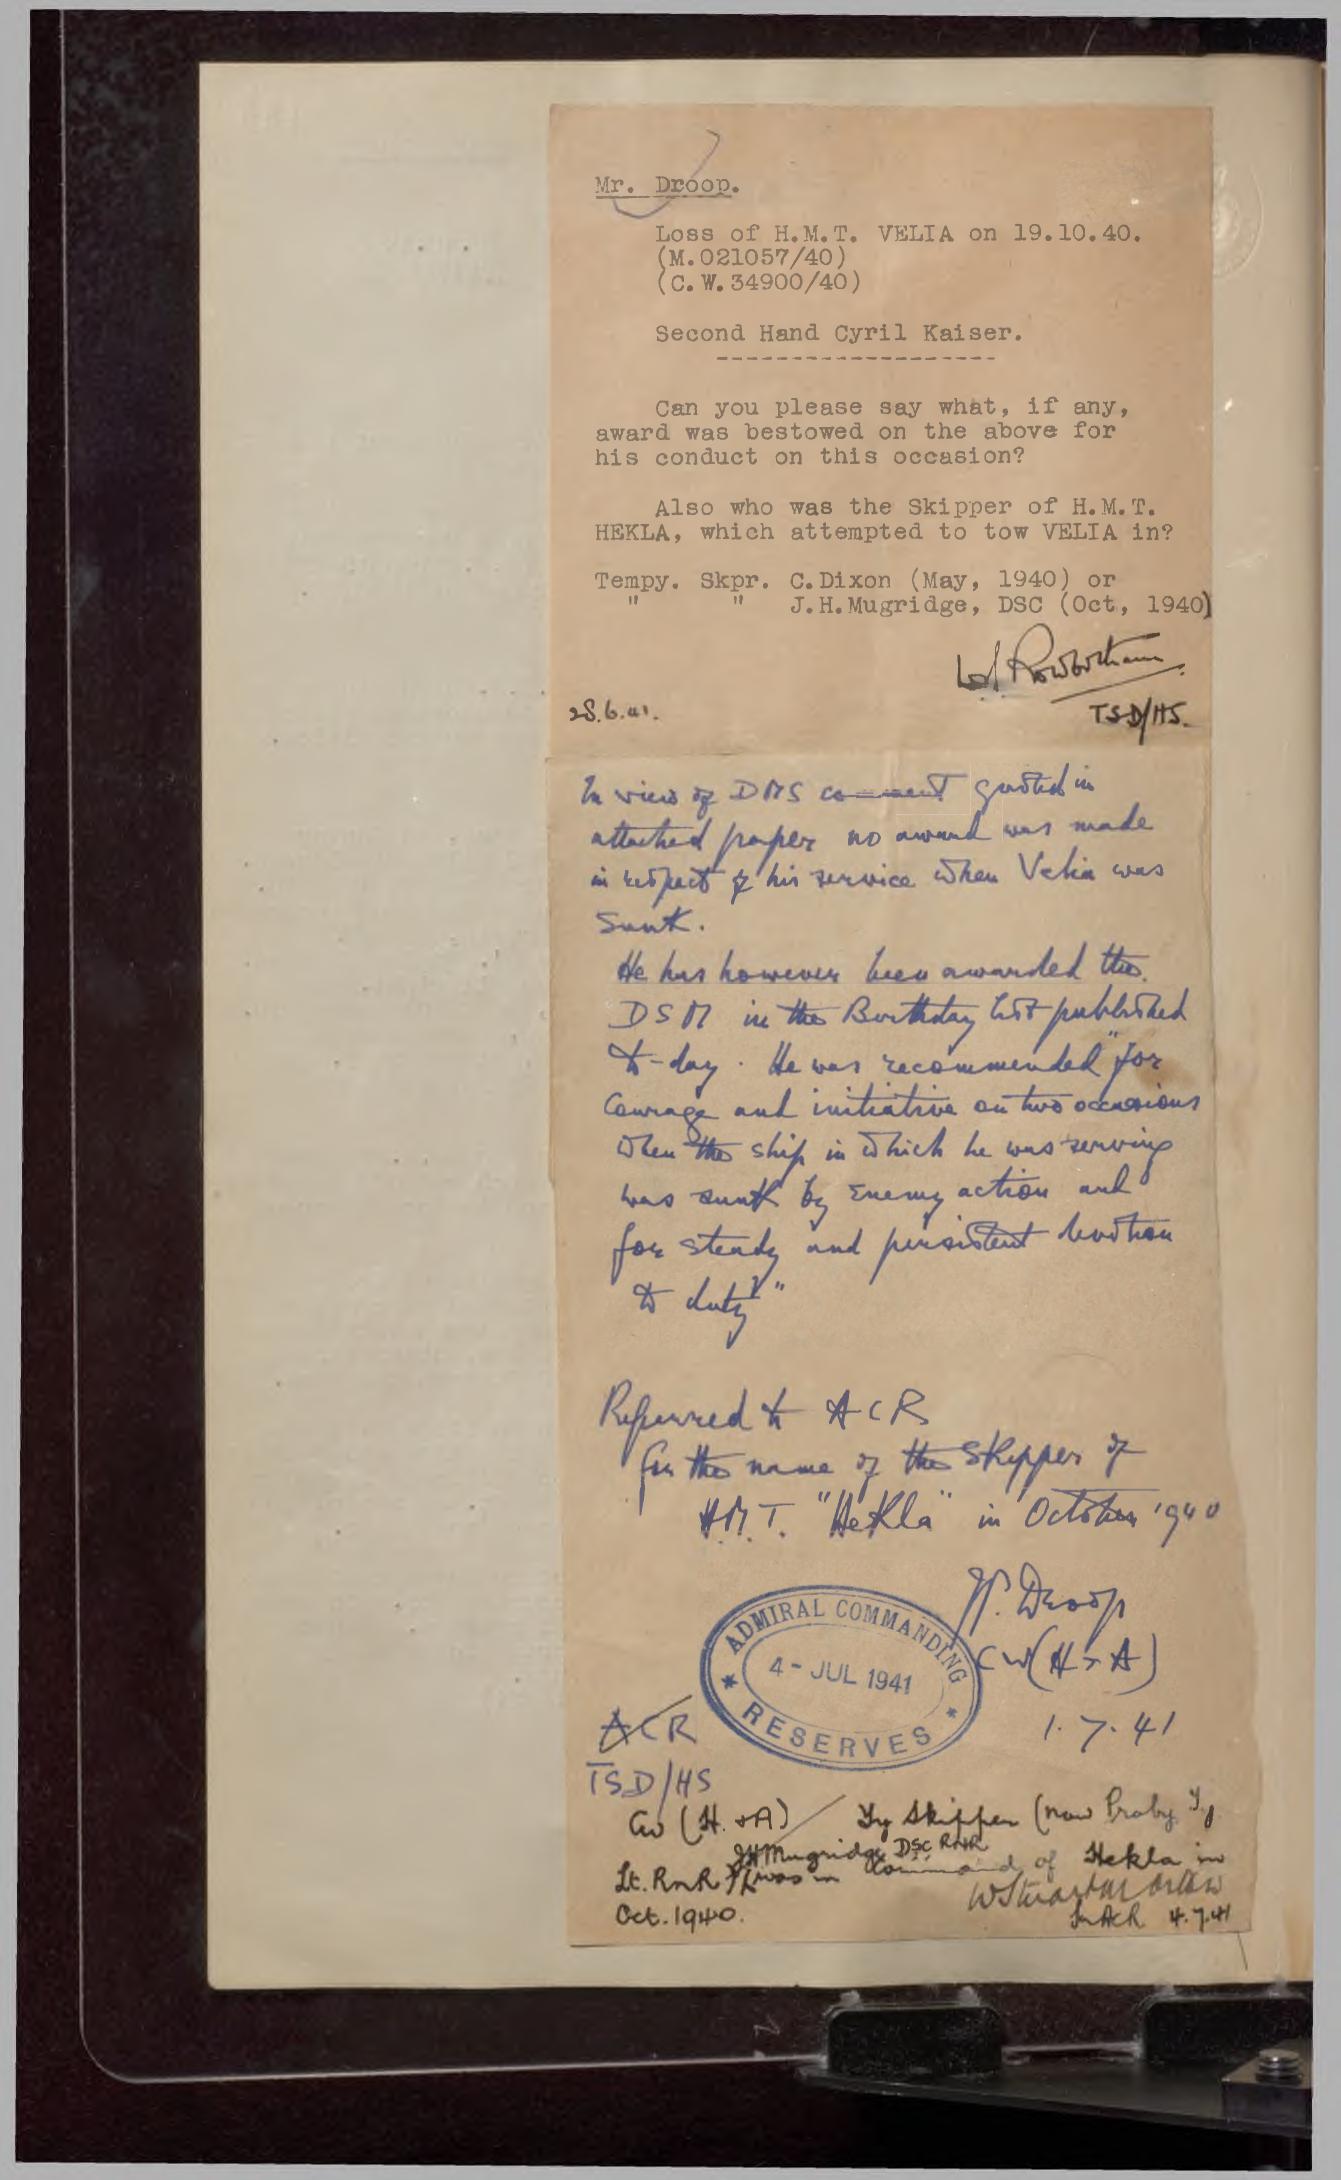 Mr. Droop.
Loss of H.M.T. VELIA on 19.10.40.
(M.021057/40)
(C.W.34900/40)
Second Hand Cyril Kaiser.
-------------------
Can you please say what, if any,
award was bestowed on the above for
his conduct on this occasion?
Also who was the Skipper of H.M.T.
HEKLA, which attempted to tow VELIA in?
Tempy. Skpr. C.Dixon (May, 1940) or
" " J.H.Mugridge, DSC (Oct, 1940)
Rowbotham
28.6.41. TSD/HS.
In view of DMS comment quoted in
attached paper no award was made
in respect of his service when Velia was
sunk.
He has however been awarded the
DSM in the Birthday list published
to-day. He was recommended "for
courage and initiative on two occasions
when the ship in which he was serving
was sunk by enemy action and
for steady and persistent devotion
to duty"
Referred to ACR
for the name of the Skipper of
H.M.T. "Hekla" in October 1940
Droop
CW(H+A)
1.7.41
ADMIRAL COMMANDING
4-JUL 1941
RESERVES
ACR
TSD/HS
CW (H.+A) Ty Skipper (now Proby Ty
JH Mugridge DSC RNR
Lt. RNR) was in Command of Hekla in
Oct. 1940.
for ACR 4.7.41